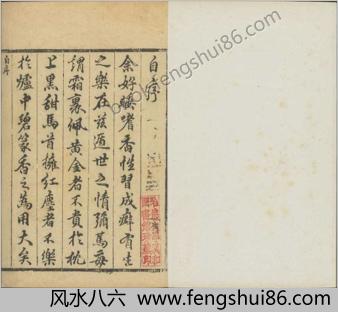 自序
余好睡嗜香性習成癖有生
之樂在茲遯世之情彌篤每
謂霜裹佩黃金者不貴於枕
上黑甜馬首擁紅塵者不樂
於爐中碧篆香之為用大矣
自序
www.fengshui86.com
风水八六 www.fengshui86.com